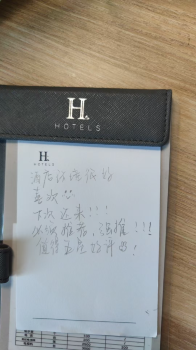 H
HOTELS
H
HOTELS
酒店环境很好
喜欢
下次还来!!!
必须推荐,强推!!!
值得五星好评!